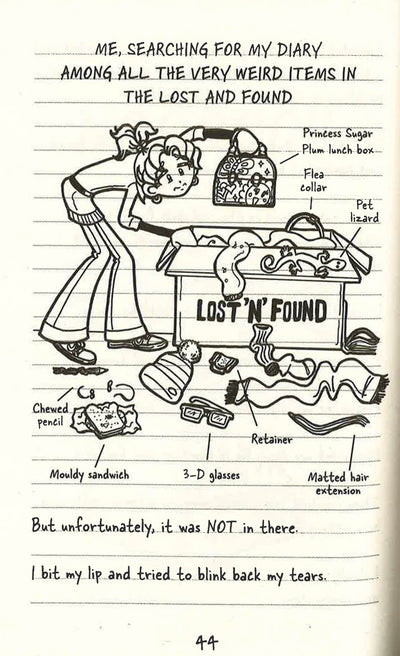 ME, SEARCHING FOR MY DIARY
AMONG ALL THE VERY WEIRD ITEMS IN
THE LOST AND FOUND
Princess Sugar
Plum lunch box
Flea
collar
Pet
lizard
LOST 'N' FOUND
Chewed
pencil
Retainer
Mouldy sandwich
3-D glasses
Matted hair
extension
But unfortunately, it was NOT in there.
I bit my lip and tried to blink back my tears.
44